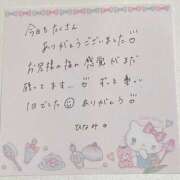 今日もたくさん
ありがとうございました
お兄様の指の感覚がまだ
残ってます… ずっと楽しい
1日でした ありがとう
ひなみ